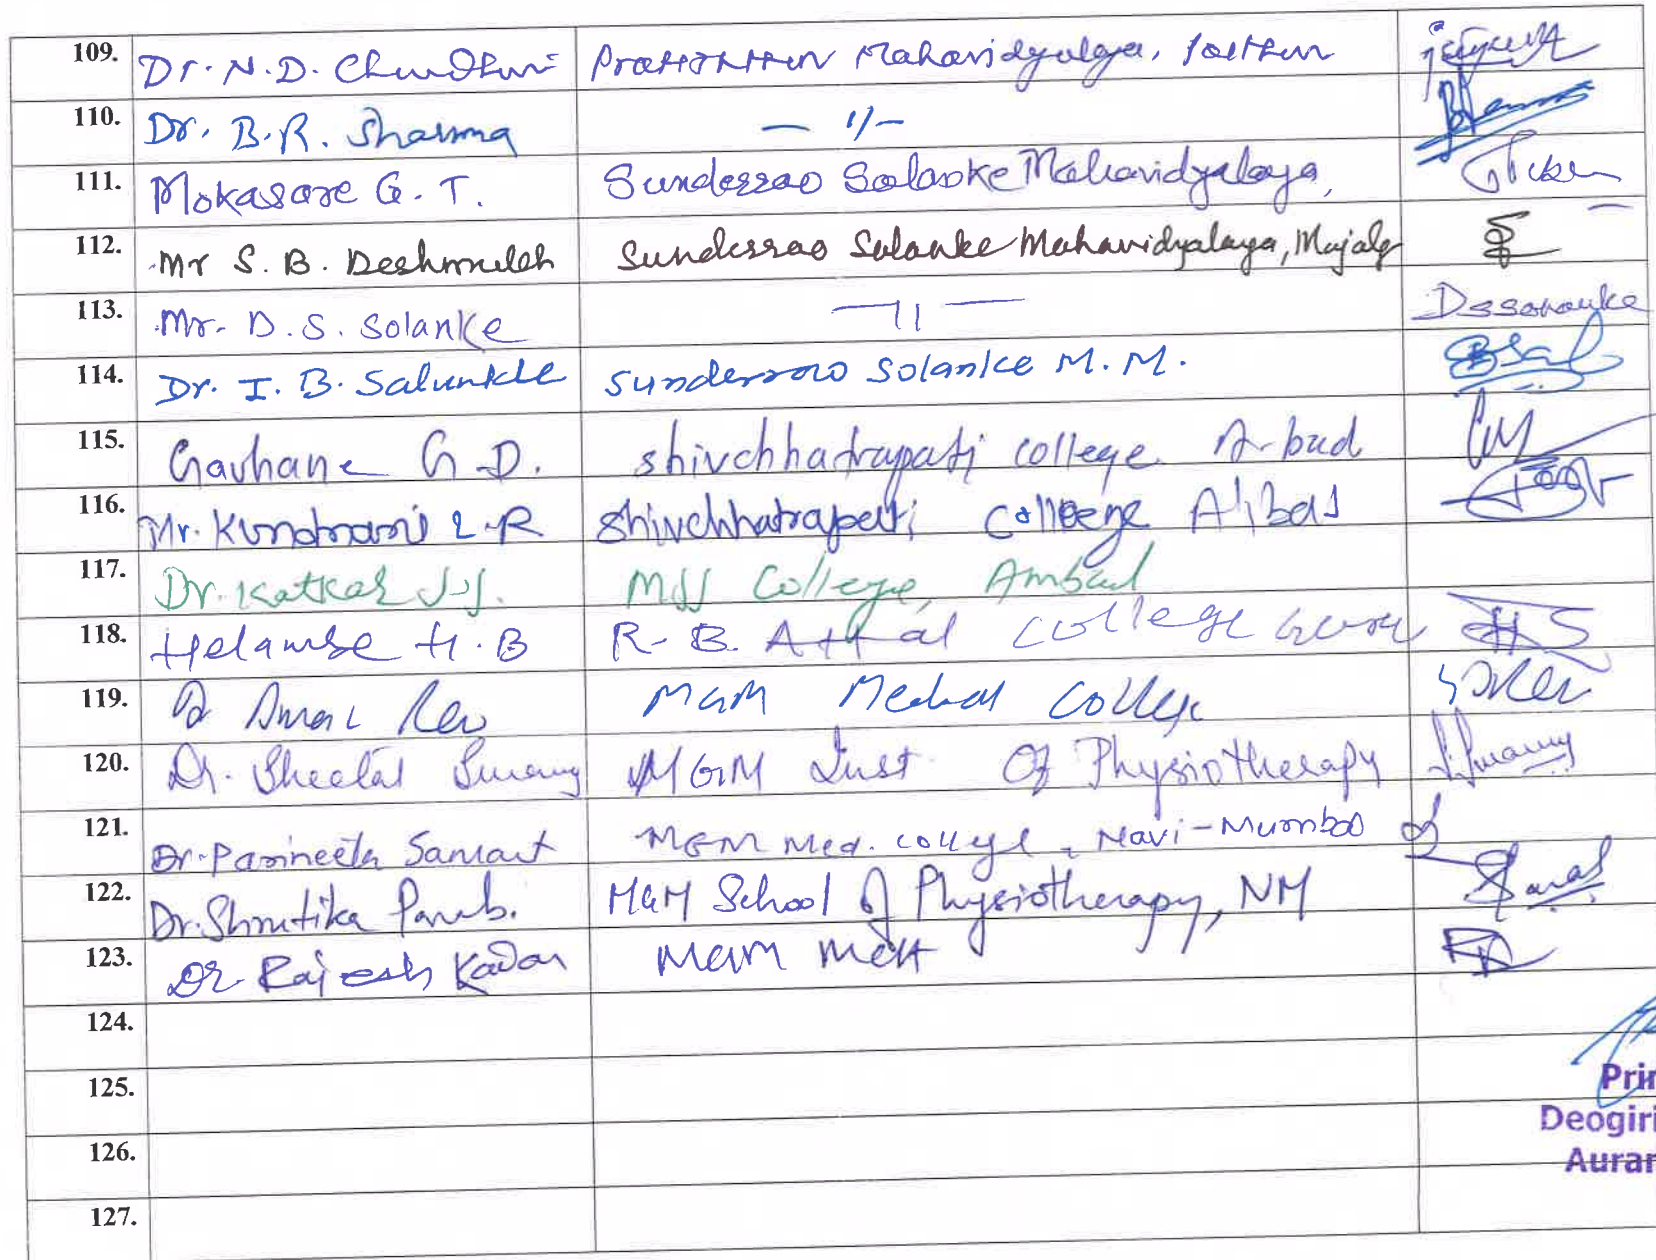 109. Dr. N. D. Chudhari Mahavidyalya,
110. Dr. B. R. Sharma — 1/ —
111. Mokasare G. T. Sunderrao Solanke Mahavidyalaya,
112. Mr S. B. Deshmukh Sunderrao Solanke Mahavidyalaya, Majalg
113. Mr. D. S. Solanke — 11 — Dssonauke
114. Dr. I. B. Salunkhe Sunderrao Solanke M. M.
115. Gavhane G. D. shivchhatrapati college A-bad
116. Mr. L. R shivchhatrapati college A'bad
117. Dr. Katkar J. J. College, Ambad
118. Helambe H. B R. B. Attal college
119. MGM Medical College
120. Dr. Sheetal MGM Inst of Physiotherapy
121. Dr. Parineeta Samant MGM Med. college, Navi-Mumbai
122. Dr. Shrutika Parab. MGM School of Physiotherapy, NM
123. Dr Rajesh Kadam MGM
124.
125.
Prin
Deogiri
126.
Auran
127.